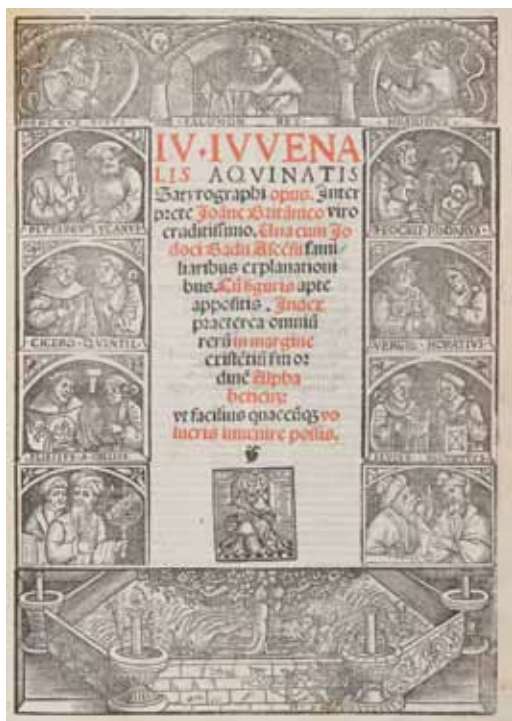 SALOMON REX
IV·IVVENA
LIS AQVINATIS
Satyrographi opus. Inter
prete Joãne Britãnico viro
eruditissimo. Una cum Jo
doci Badii Ascẽsii fami/
liaribus explanationi
bus. Cũ figuris apte
appositis. Index
praeterea omniũ
rerũ in margine
existẽtiũ
dinẽ Alpha
beticũ:
vt facilius quaecũqz vo
lueris inuenire possis.
LVCANVS
CICERO · QVINTIL
VERGIL · HORATIVS